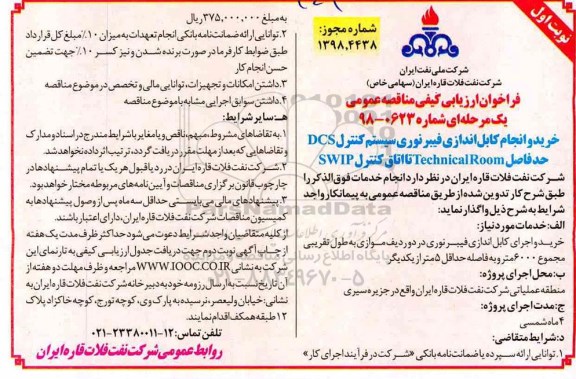 نوبت اول
شماره مجوز:
۱۳۹۸,۴۴۳۸
شرکت ملی نفت ایران
شرکت نفت فلات قاره ایران (سهامی خاص)
فراخوان ارزیابی کیفی مناقصه عمومی
یک مرحله‌ای شماره ۰۶۲۳-۹۸
خرید و انجام کابل اندازی فیبر نوری سیستم کنترل DCS
حد فاصل Technical Room تا اتاق کنترل SWIP
شرکت نفت فلات قاره ایران در نظر دارد انجام خدمات فوق الذکر را
طبق شرح کار تدوین شده از طریق مناقصه عمومی به پیمانکار واجد
شرایط به شرح ذیل واگذار نماید:
الف: خدمات مورد نیاز:
خرید و اجرای کابل اندازی فیبر نوری در دو ردیف موازی به طول تقریبی
مجموع ۶۰۰۰ متر و به فاصله حداقل ۵ متر از یکدیگر
ب: محل اجرای پروژه:
منطقه عملیاتی شرکت نفت فلات قاره ایران واقع در جزیره سیری
ج: مدت اجرای پروژه:
۴ ماه شمسی
د: شرایط متقاضی:
۱. توانایی ارائه سپرده یا ضمانت نامه بانکی «شرکت در فرآیند اجرای کار»
به مبلغ ۳۷۵,۰۰۰,۰۰۰ ریال
۲. توانایی ارائه ضمانت نامه بانکی انجام تعهدات به میزان ۱۰٪ مبلغ کل قرارداد
طبق ضوابط کارفرما در صورت برنده شدن و نیز کسر ۱۰٪ جهت تضمین
حسن انجام کار
۳. داشتن امکانات و تجهیزات، توانایی مالی و تخصص در موضوع مناقصه
۴. داشتن سوابق اجرایی مشابه با موضوع مناقصه
هـ: سایر شرایط:
۱. به تقاضاهای مشروط، مبهم، ناقص و یا مغایر با شرایط مندرج در اسناد و مدارک
و تقاضاهایی که بعد از مهلت مقرر دریافت گردد، ترتیب اثر داده نخواهد شد.
۲. شرکت نفت فلات قاره ایران در رد یا قبول هر یک یا تمام پیشنهادها در
چارچوب قانون برگزاری مناقصات و آیین نامه های مربوطه مختار خواهد بود.
۳. پیشنهادهای مالی می بایستی حداقل سه ماه پس از وصول پیشنهادها به
کمیسیون مناقصات شرکت نفت فلات قاره ایران، دارای اعتبار باشند.
از کلیه متقاضیان واجد شرایط دعوت می شود حداکثر ظرف مدت یک هفته
از چاپ آگهی نوبت دوم جهت دریافت جدول ارزیابی کیفی به تارنمای این
شرکت به نشانی WWW.IOOC.CO.IR مراجعه و ظرف مهلت دو هفته از
آن تاریخ نسبت به ارسال رزومه خود به دبیرخانه شرکت نفت فلات قاره ایران به
نشانی: خیابان ولیعصر، نرسیده به پارک وی، کوچه تورج، کوچه خاکزاد پلاک
۱۲ طبقه همکف اقدام نمایند.
تلفن تماس: ۱۲-۲۳۳۸۰۰۱۱-۰۲۱
روابط عمومی شرکت نفت فلات قاره ایران